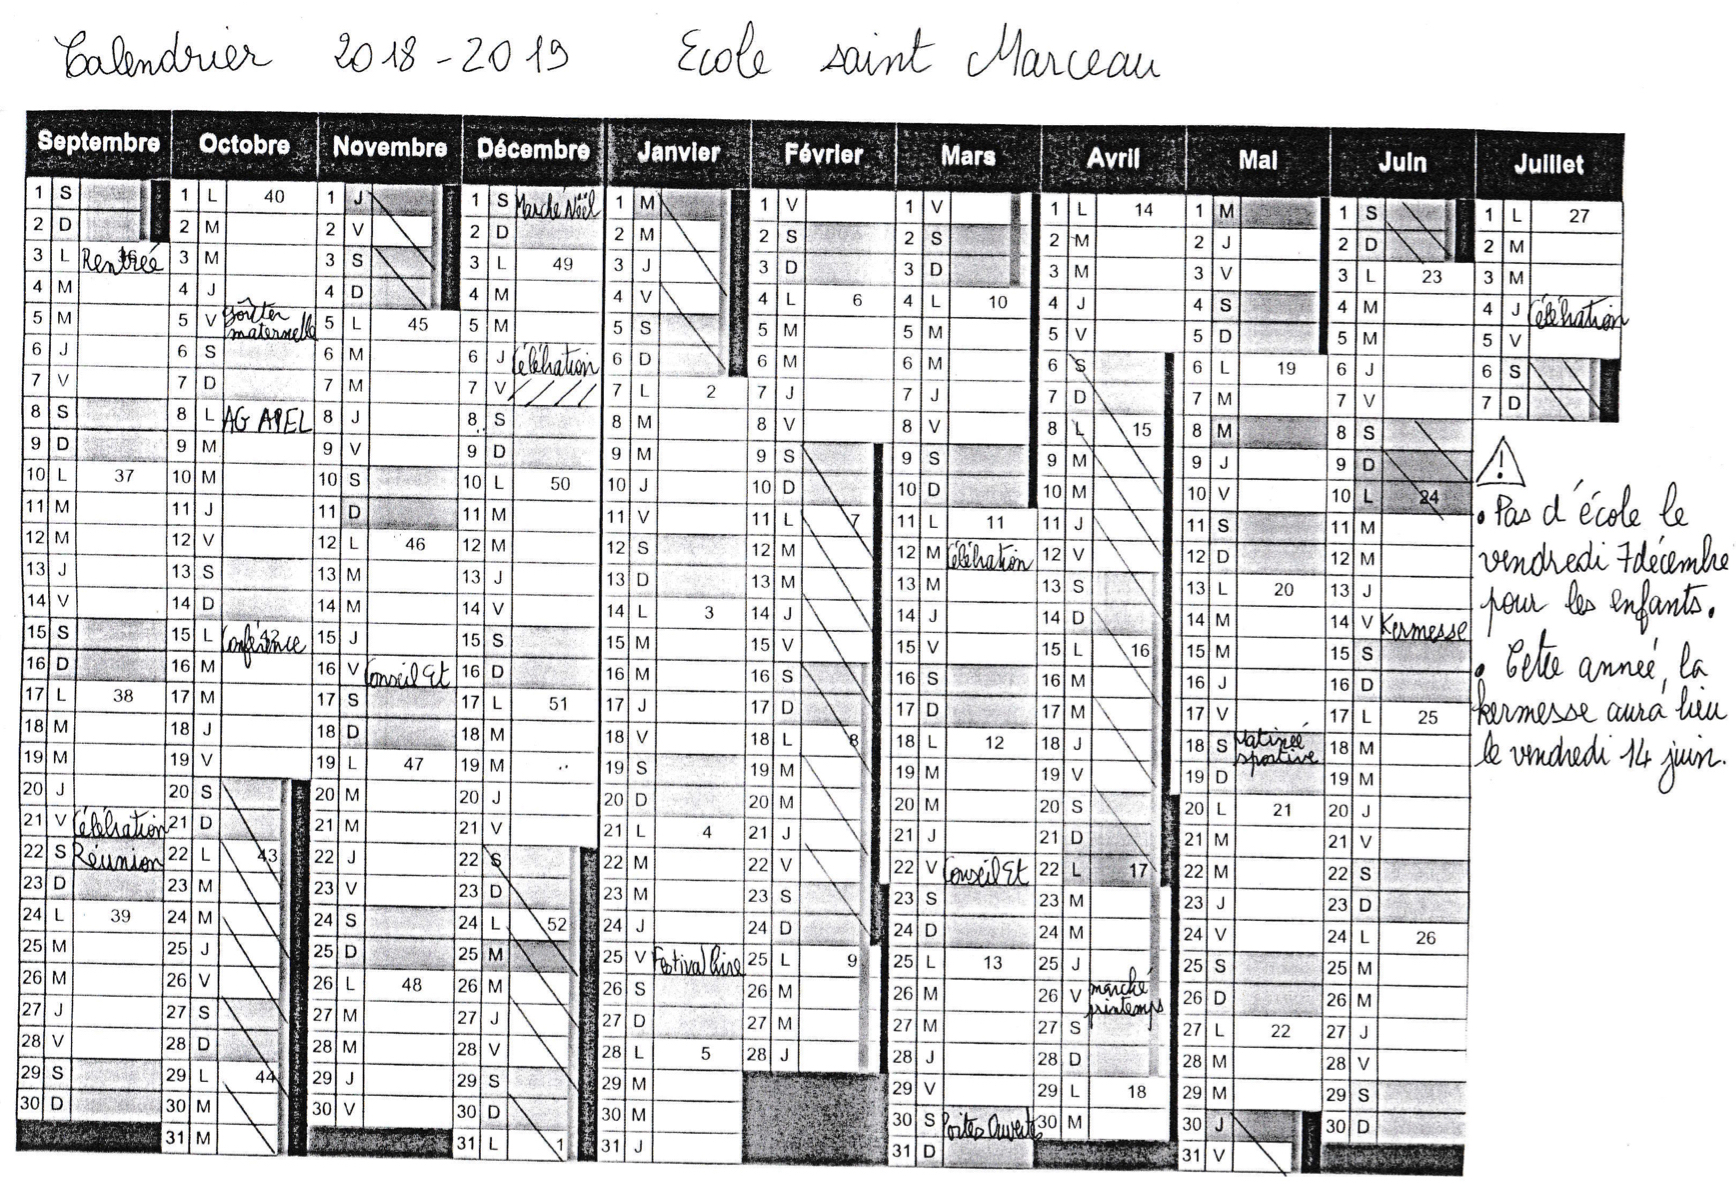 Calendrier 2018-2019 Ecole saint Marceau
Septembre
1 S
2 D
3 L Rentrée
4 M
5 M
6 J
7 V
8 S
9 D
10 L 37
11 M
12 M
13 J
14 V
15 S
16 D
17 L 38
18 M
19 M
20 J
21 V Célébration
22 S Réunion
23 D
24 L 39
25 M
26 M
27 J
28 V
29 S
30 D
Octobre
1 L 40
2 M
3 M
4 J
5 V Goûter
maternelle
6 S
7 D
8 L AG APEL
9 M
10 M
11 J
12 V
13 S
14 D
15 L Conférence 42
16 M
17 M
18 J
19 V
20 S
21 D
22 L 43
23 M
24 M
25 J
26 V
27 S
28 D
29 L 44
30 M
31 M
Novembre
1 J
2 V
3 S
4 D
5 L 45
6 M
7 M
8 J
9 V
10 S
11 D
12 L 46
13 M
14 M
15 J
16 V Conseil Et
17 S
18 D
19 L 47
20 M
21 M
22 J
23 V
24 S
25 D
26 L 48
27 M
28 M
29 J
30 V
Décembre
1 S Marché Noël
2 D
3 L 49
4 M
5 M
6 J Célébration
7 V
8 S
9 D
10 L 50
11 M
12 M
13 J
14 V
15 S
16 D
17 L 51
18 M
19 M
20 J
21 V
22 S
23 D
24 L 52
25 M
26 M
27 J
28 V
29 S
30 D
31 L 1
Janvier
1 M
2 M
3 J
4 V
5 S
6 D
7 L 2
8 M
9 M
10 J
11 V
12 S
13 D
14 L 3
15 M
16 M
17 J
18 V
19 S
20 D
21 L 4
22 M
23 M
24 J
25 V Festival lire
26 S
27 D
28 L 5
29 M
30 M
31 J
Février
1 V
2 S
3 D
4 L 6
5 M
6 M
7 J
8 V
9 S
10 D
11 L 7
12 M
13 M
14 J
15 V
16 S
17 D
18 L 8
19 M
20 M
21 J
22 V
23 S
24 D
25 L 9
26 M
27 M
28 J
Mars
1 V
2 S
3 D
4 L 10
5 M
6 M
7 J
8 V
9 S
10 D
11 L 11
12 M Célébration
13 M
14 J
15 V
16 S
17 D
18 L 12
19 M
20 M
21 J
22 V Conseil Et
23 S
24 D
25 L 13
26 M
27 M
28 J
29 V
30 S Portes Ouvertes
31 D
Avril
1 L 14
2 M
3 M
4 J
5 V
6 S
7 D
8 L 15
9 M
10 M
11 J
12 V
13 S
14 D
15 L 16
16 M
17 M
18 J
19 V
20 S
21 D
22 L 17
23 M
24 M
25 J
26 V marché
printemps
27 S
28 D
29 L 18
30 M
Mai
1 M
2 J
3 V
4 S
5 D
6 L 19
7 M
8 M
9 J
10 V
11 S
12 D
13 L 20
14 M
15 M
16 J
17 V
18 S Matinée
sportive
19 D
20 L 21
21 M
22 M
23 J
24 V
25 S
26 D
27 L 22
28 M
29 M
30 J
31 V
Juin
1 S
2 D
3 L 23
4 M
5 M
6 J
7 V
8 S
9 D
10 L 24
11 M
12 M
13 J
14 V Kermesse
15 S
16 D
17 L 25
18 M
19 M
20 J
21 V
22 S
23 D
24 L 26
25 M
26 M
27 J
28 V
29 S
30 D
Juillet
1 L 27
2 M
3 M
4 J Célébration
5 V
6 S
7 D
!
• Pas d'école le
vendredi 7 décembre
pour les enfants.
• Cette année, la
kermesse aura lieu
le vendredi 14 juin.